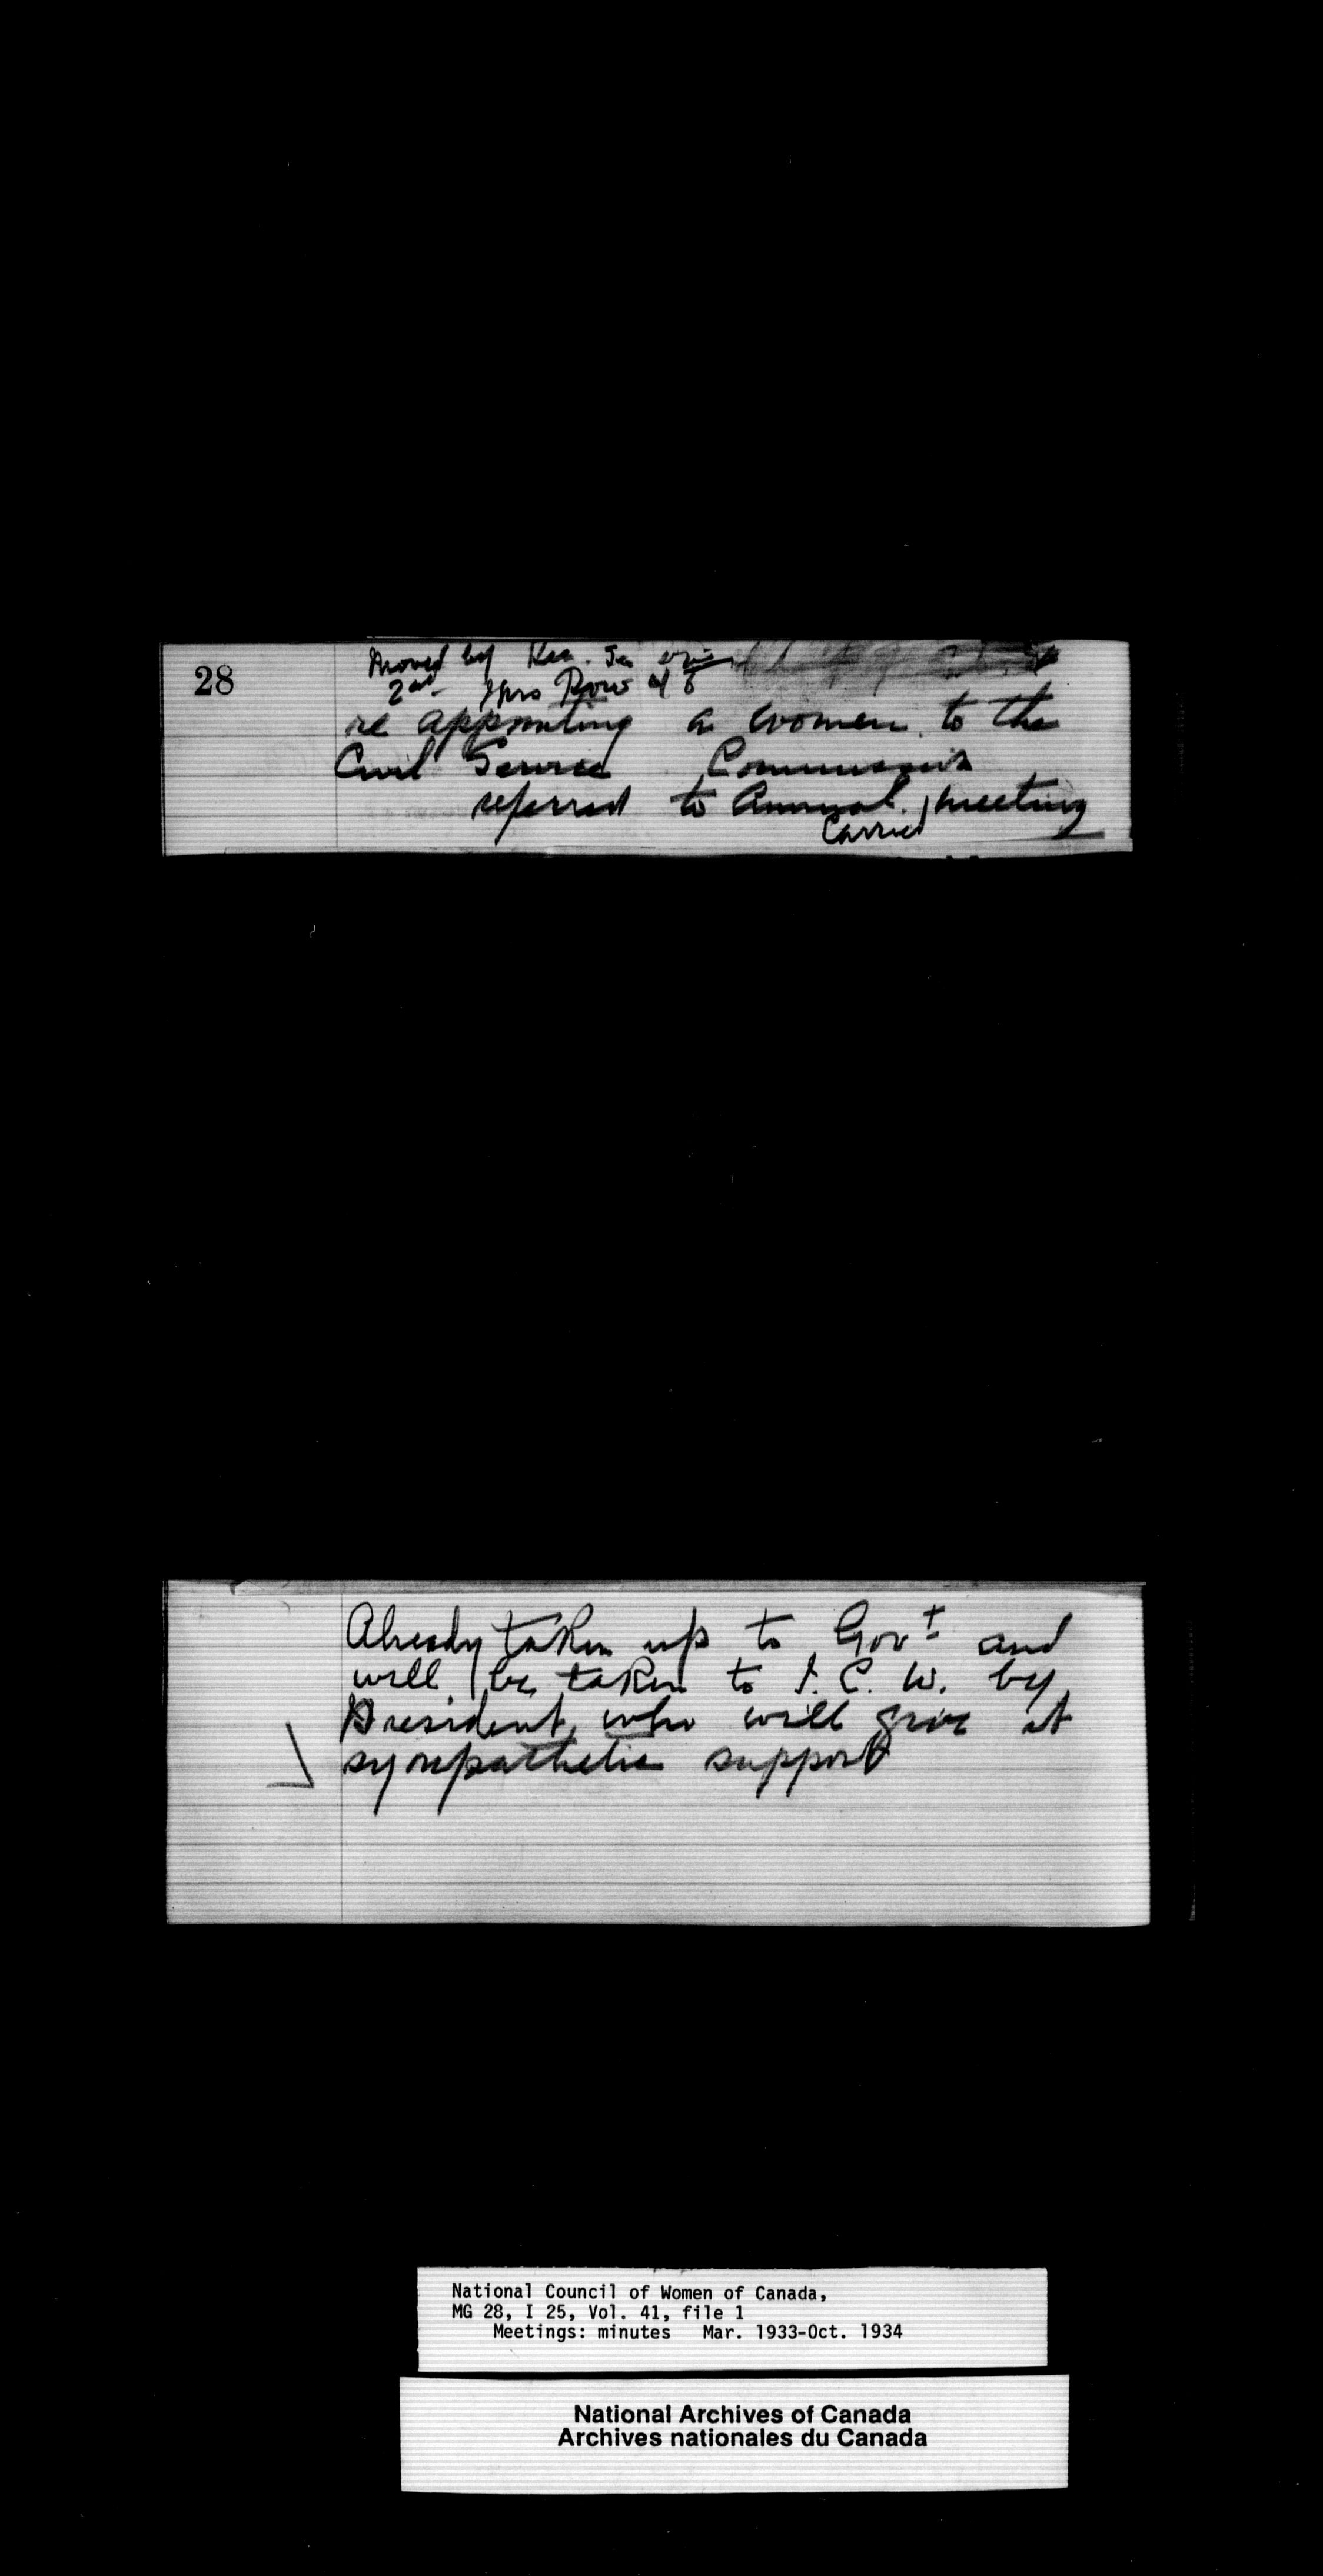 28
Moved by
2nd Mrs
re appointing a women to the
Civil Service Commission
referred to Annual meeting
Carried
Already taken up to Govt and
will be taken to I. C. W. by
President, who will give it
sympathetic support
National Council of Women of Canada,
MG 28, I 25, Vol. 41, file 1
Meetings: minutes Mar. 1933-Oct. 1934
National Archives of Canada
Archives nationales du Canada